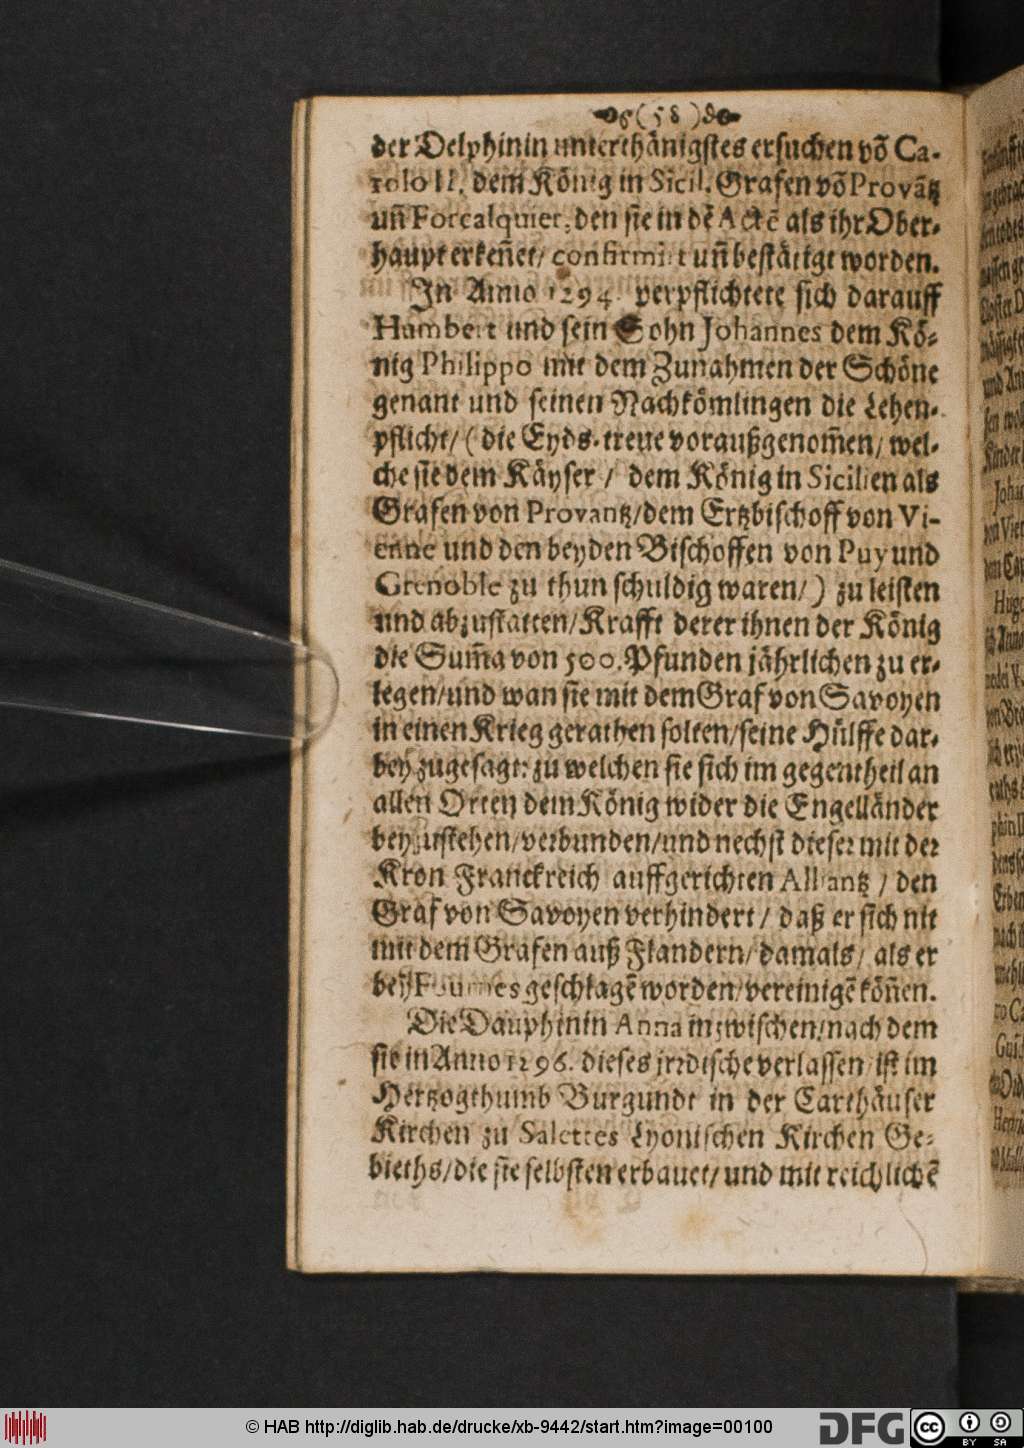 (58)
der Delphinin unterthänigstes ersuchen võ Ca-
rolo II. dem König in Sicil. Grafen võ Provãtz
uñ Forcalquier, den sie in dẽ Actẽ als ihr Ober-
haupt erkeñet/ confirmirt uñ bestätigt worden.
In Anno 1294. verpflichtete sich darauff
Humbert und sein Sohn Johannes dem Kö-
nig Philippo mit dem Zunahmen der Schöne
genant und seinen Nachkömlingen die Lehen-
pflicht/ (die Eyds-treue voraußgenom̃en/ wel-
che sie dem Käyser / dem König in Sicilien als
Grafen von Provantz/dem Ertzbischoff von Vi-
enne und den beyden Bischoffen von Puy und
Grenoble zu thun schuldig waren/) zu leisten
und abzustatten/Krafft derer ihnen der König
die Sum̃a von 500. Pfunden jährlichen zu er-
legen/und wan sie mit dem Graf von Savoyen
in einen Krieg gerathen solten/seine Hülffe dar-
bey zugesagt: zu welchen sie sich im gegentheil an
allen Orten dem König wider die Engelländer
beyzustehen/verbunden/und nechst dieser mit der
Kron Franckreich auffgerichten Alliantz / den
Graf von Savoyen verhindert / daß er sich nit
mit dem Grafen auß Flandern/ damals/ als er
bey Fournes geschlagẽ worden/vereinigẽ köñen.
Die Dauphinin Anna inzwischen/nach dem
sie in Anno 1296. dieses jrrdische verlassen/ ist im
Hertzogthumb Burgundt in der Carthäuser
Kirchen zu Salettes Lyonischen Kirchen Ge-
bieths/die sie selbsten erbauet/ und mit reichlichẽ
© HAB http://diglib.hab.de/drucke/xb-9442/start.htm?image=00100
DFG
cc
BY
SA